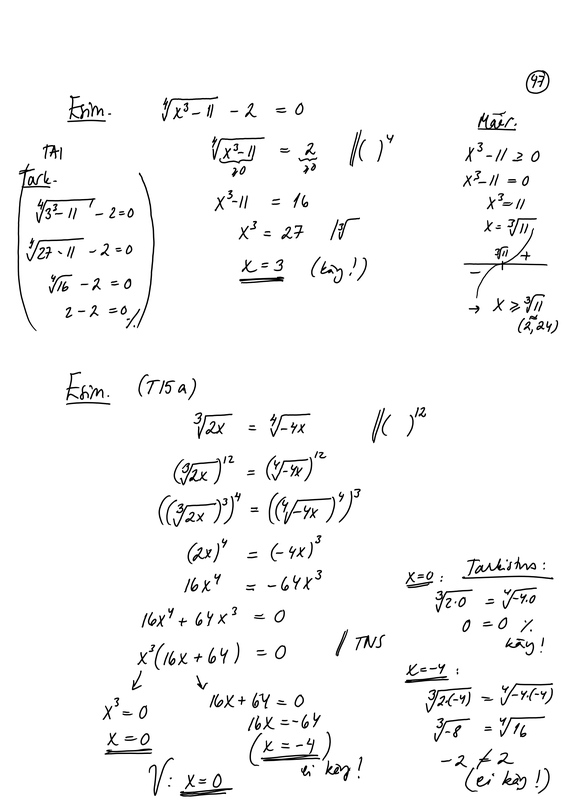 47
Esim. ∜(x³-11) - 2 = 0
∜(x³-11) = 2 ||( )⁴
≥0 ≥0
x³-11 = 16
x³ = 27 |∛
x = 3 (käy!)
TAI
Tark.
∜(3³-11) - 2 = 0
∜(27-11) - 2 = 0
∜16 - 2 = 0
2 - 2 = 0 %
Määr.
x³-11 ≥ 0
x³-11 = 0
x³ = 11
x = ∛11
∛11 +
-
→ x ≥ ∛11
(≈2,24)
Esim. (T15a)
∛(2x) = ∜(-4x) ||( )¹²
(∛(2x))¹² = (∜(-4x))¹²
((∛(2x))³)⁴ = ((∜(-4x))⁴)³
(2x)⁴ = (-4x)³
16x⁴ = -64x³
16x⁴ + 64x³ = 0
x³(16x+64) = 0 || TNS
↙ ↘
x³ = 0 16x+64 = 0
x = 0 16x = -64
(x = -4)
ei käy!
V: x = 0
x=0: Tarkistus:
∛(2·0) = ∜(-4·0)
0 = 0 %
käy!
x=-4:
∛(2·(-4)) = ∜(-4·(-4))
∛-8 = ∜16
-2 ≠ 2
(ei käy!)